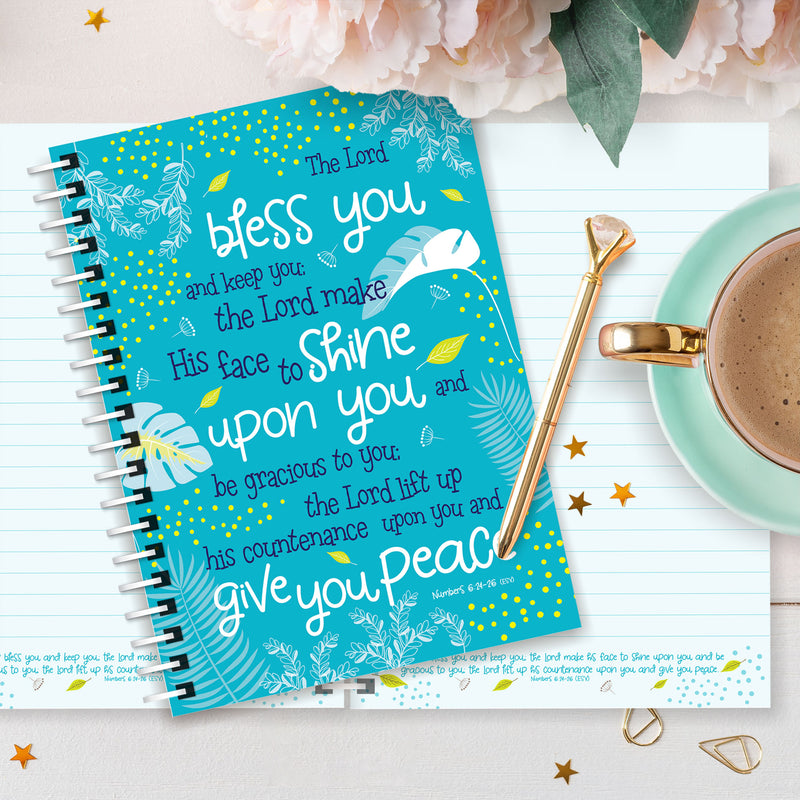 The Lord
bless you
and keep you;
the Lord make
His face to shine
upon you and
be gracious to you;
the Lord lift up
his countenance upon you and
give you peace
Numbers 6:24-26 (ESV)
bless you and keep you, the Lord make
to you; the Lord lift up his
Numbers 6:24-26 (ESV)
bless you and keep you, the Lord make his face to shine upon you and be
gracious to you; the Lord lift up his countenance upon you and give you peace.
Numbers 6:24-26 (ESV)